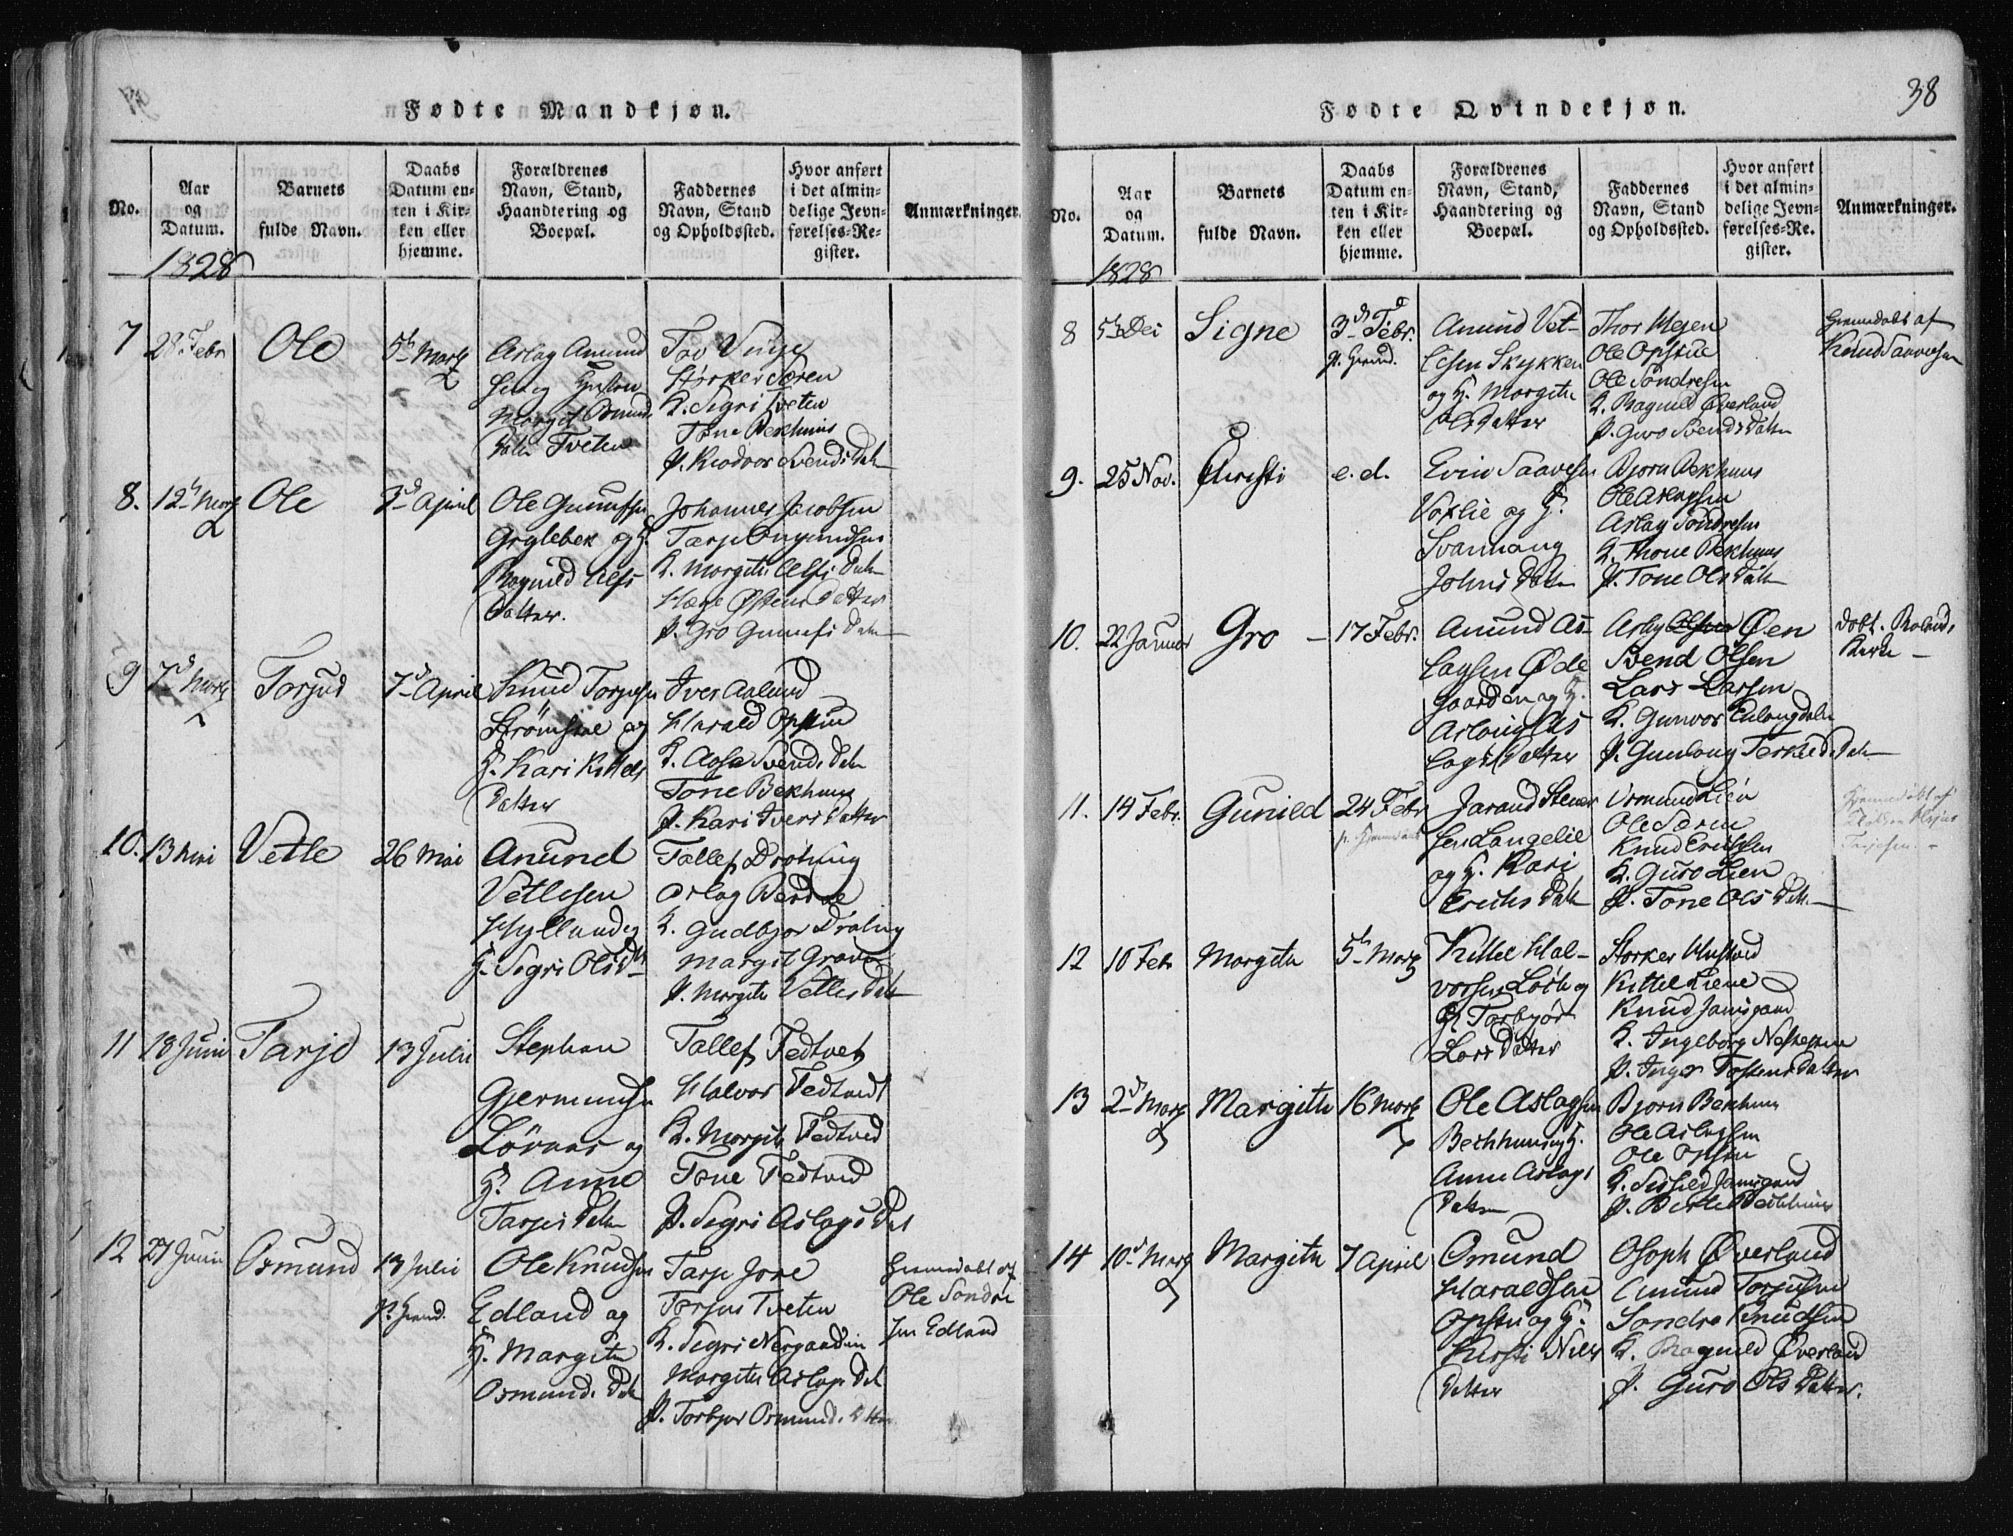 Fødte Mandkjøn.
No.
Aar
og
Datum.
Barnets
fulde Navn.
Daabs
Datum en-
ten i Kir-
ken eller
hjemme.
Forældrenes
Navn, Stand,
Haandtering og
Boepæl.
Faddernes
Navn, Stand
og Opholdssted.
Hvor anført
i det almin-
delige Jevn-
førelses-Re-
gister.
Anmærkninger.
1828
7
28 Febr
Ole
5 Martz
Aslag Amund
sen og Hustru
Margit Osmunds
Datter Tveten
Tov Vinje
Størker Særen
K. Segri Tveten
Tone Bekhuus
P. Svends Datter
8.
12 Martz
Ole
3 April
Ole Gunufsen
Grglebek og H.
Ragnild Alfs
Datter.
Johannes Jacobsen
Tarje Ougundsen
K. Margith Alfs Datter
Hæge Østens Datter
P. Gro Gunufs Datter
9
7 Martz
Torjus
7 April
Knud Torjusen
Strömstoe og
H. Kari Kittels
Datter
Iver Aalund
Harald Opstun
K. Aase Svends Datter
Tone Bekhuus
P. Kari Ivers Datter
10.
13 Mai
Vetle
26 Mai
Anund
Vetlesen
Hylland og
H. Segri Ols Dtr
Tallef Drotning
Aslag Berdoe
K. Gudbjor Drotning
Margit Graver
P. Margith Vetles Datter
11
18 Juni
Tarje
13 Julii
Stephan
Gjermundsen
Lövaas og
H. Anne
Tarjes Datter
Tallef Fedtvet
Halvor Fedtvedt
K. Margith Fedtved
Tone Fedtved
P. Segri Aslags Dat
12
27 Juni
Osmund
13 Julii
p. Hiemd.
Ole Knudsen
Edland og
H. Margith
Osmunds Datter
Tarje Jore
Torjus Tveten
K. Segri Nergaarden
Margith Aslags Dat
P. Torbjor Osmunds Datter
Hiemdøbt af
Ole Sondre
sen Edland
38
Fødte Qvindekjøn.
No.
Aar
og
Datum.
Barnets
fulde Navn.
Daabs
Datum en-
ten i Kir-
ken eller
hjemme.
Forældrenes
Navn, Stand,
Haandtering og
Boepæl.
Faddernes
Navn, Stand
og Opholdssted.
Hvor anført
i det almin-
delige Jevn-
førelses-Re-
gister.
Anmærkninger.
1828
8
5 Dec
Signe
3 Febr.
p. Hiemd.
Anund Vet-
lesen Skykken
og H. Margith
Ols Datter
Thor Mejen
Ole Opstue
Ole Sondresen
K. Ragnild Øverland
P. Guro Svends Datter
Hiemdøbt af
Knud Saavesen
9.
25 Nov.
Kirsti
e. d.
Evin Saavesen
Voxlie og H.
Svannaug
Johns Datter
Bjorn Bekhuus
Ole Aslagsen
Aslag Sondresen
K. Thone Bekhuus
P. Tone Ols Datter
10.
22 Januar
Gro
17 Febr.
Anund As-
lagsen Øde
gaarden og H.
Aslaug As
lags Datter
Aslag Olsen Øen
Svend Olsen
Lars Larsen
K. Gunvor
P. Gunlaug Terkels Datter
døbt. Rolands
Kirke
11.
14 Febr.
Gunild
24 Febr
p. Hjemdøbt
Jarand Stener
sen Langelie
og H. Kari
Erichs Datter
Osmund Lien
Ole Særen
Knud Erichsen
K. Guro Lien
P. Tone Ols Datter
Hjemmedøbt af
12
10 Febr
Margith
5 Martz
Kittel Hal-
vorsen Lösh og
H. Torbjör
Lars Datter
Storker
Kittel Liene
Knud Jamsgaard
K. Ingeborg Nesheim
P. Inger Tostens Datter
13
2 Martz
Margith
16 Martz
Ole Aslagsen
Bechhuus og H.
Anne Aslags
Datter
Bjorn Bekhuus
Ole Aslagsen
Ole Opstun
K. Jamsgaard
P. Birthe Bechhuus
14
10 Martz
Margith
7 April
Omund
Haraldsen
Opstun og H.
Kirsti Niels
Datter
Osoph Øverland
Amund Torjusen
Sondre Knudsen
K. Ragnild Øverland
P. Guro Ols Datter.